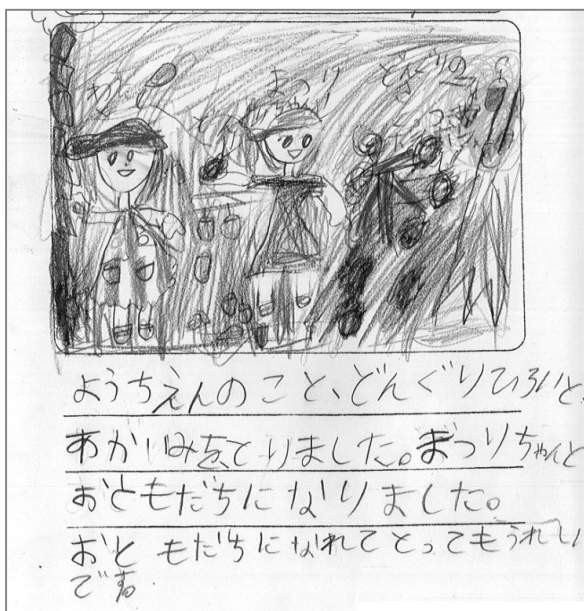 まつり
ちゃん
どんぐりの
ようちえんのこと、どんぐりひろいと、
あかいみをとりました。まつりちゃんと
おともだちになりました。
おともだちになれてとってもうれしい
です